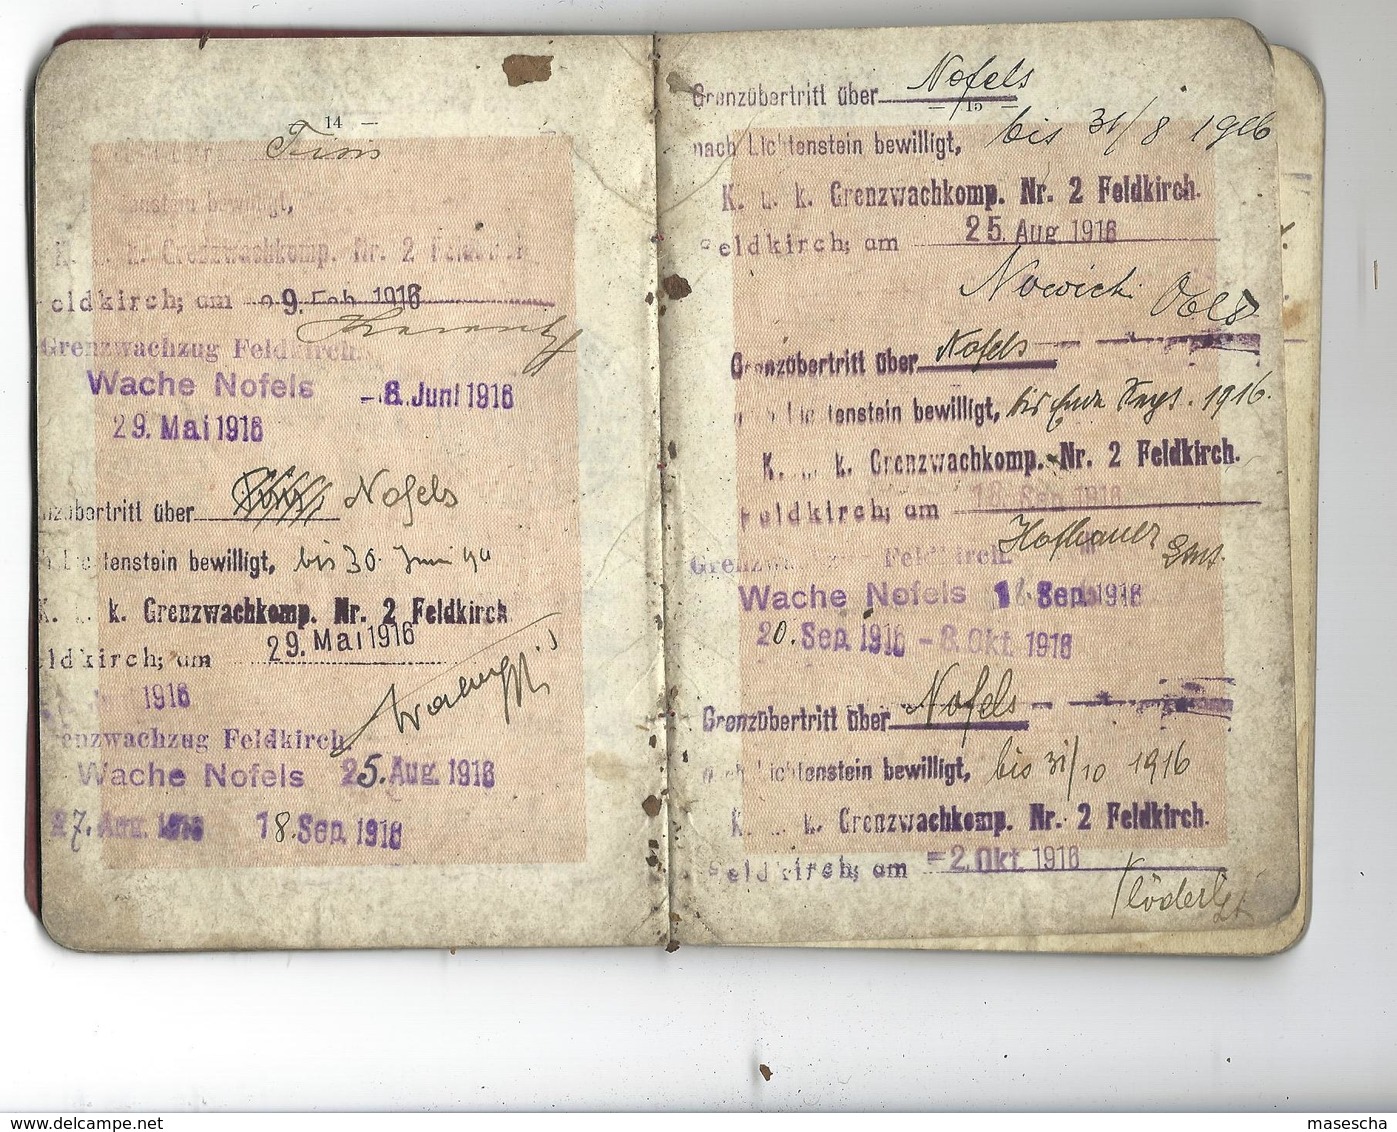 14 —
Tisis
bewilligt,
K. k. Grenzwachkomp. Nr. 2
eldkirch; am 9. Feb 1916
Grenzwachzug Feldkirch.
Wache Nofels - 6. Juni 1916
29. Mai 1916
nzübertritt über Nofels
Lichtenstein bewilligt, bis 30. Juni
K. k. Grenzwachkomp. Nr. 2 Feldkirch
eldkirch; am 29. Mai 1916
1916
enzwachzug Feldkirch
Wache Nofels 25. Aug. 1916
27. Aug. 1916 18. Sep. 1916
Grenzübertritt über Nofels
— 15 —
nach Lichtenstein bewilligt, bis 31/8 1916
K. u. k. Grenzwachkomp. Nr. 2 Feldkirch.
Feldkirch; am 25. Aug 1916
Grenzübertritt über Nofels
Lichtenstein bewilligt, bis Ende 1916.
K. u. k. Grenzwachkomp. Nr. 2 Feldkirch.
Feldkirch; am 18 Sep. 1916
Hofbauer
Grenzwachzug Feldkirch.
Wache Nofels 18 Sep. 1916
20. Sep. 1916 - 8. Okt 1916
Grenzübertritt über Nofels
nach Lichtenstein bewilligt, bis 31/10 1916
K. u. k. Grenzwachkomp. Nr. 2 Feldkirch.
Feldkirch; am - 2. Okt. 1916
delcampe.net
masescha